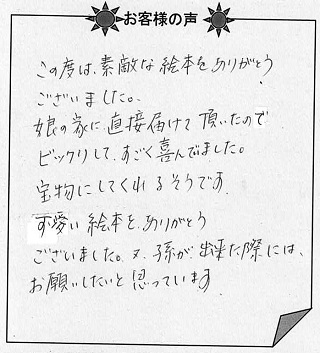 お客様の声
この度は、素敵な絵本をありがとう
ございました。
娘の家に直接届けて頂いたので
ビックリして、すごく喜んでました。
宝物にしてくれるそうです
可愛い絵本を、ありがとう
ございました。又、孫が、出来た際には、
お願いしたいと思っています